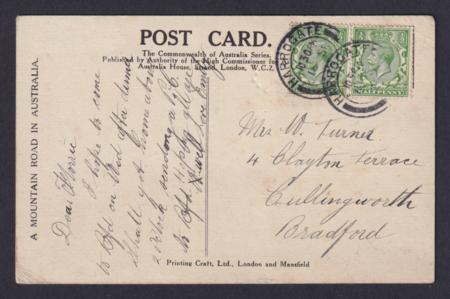 POST CARD.
The Commonwealth of Australia Series.
Published by Authority of the High Commissioner for
Australia House, Strand, London, W.C.2.
A MOUNTAIN ROAD IN AUSTRALIA.
HARROGATE
HARROGATE
HALFPENNY
Dear Florrie
I hope to come
to Bfd on Wed after dinner
shall get home about
o'clock
to Bfd
well love
Mrs W. Turner
4 Clayton Terrace
Cullingworth
Bradford
Printing Craft, Ltd., London and Mansfield